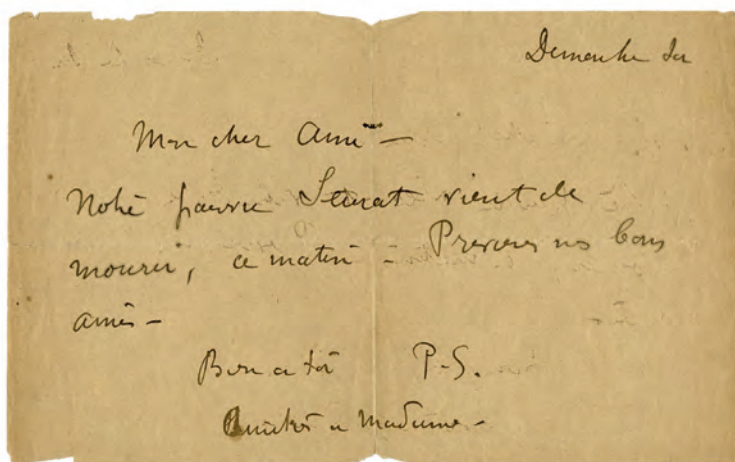 Dimanche soir
Mon cher Ami —
Notre pauvre Seurat vient de
mourir, ce matin — Prévenez nos bons
amis —
Bien à toi P-S.
Amitiés à Madame —